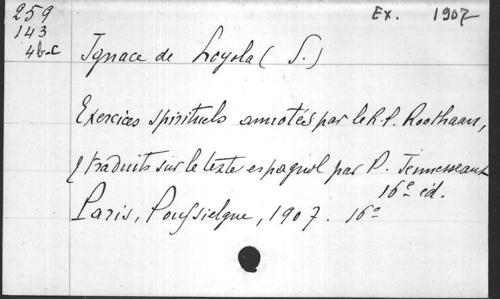 259
143
4b-c
Ex. 1907
Ignace de Loyola (S.)
Exercices spirituels annotés par le R. P. Roothaan,
& traduits sur le texte espagnol par P. Jennesseaux
16e éd.
Paris, Poussielgue, 1907. 16o